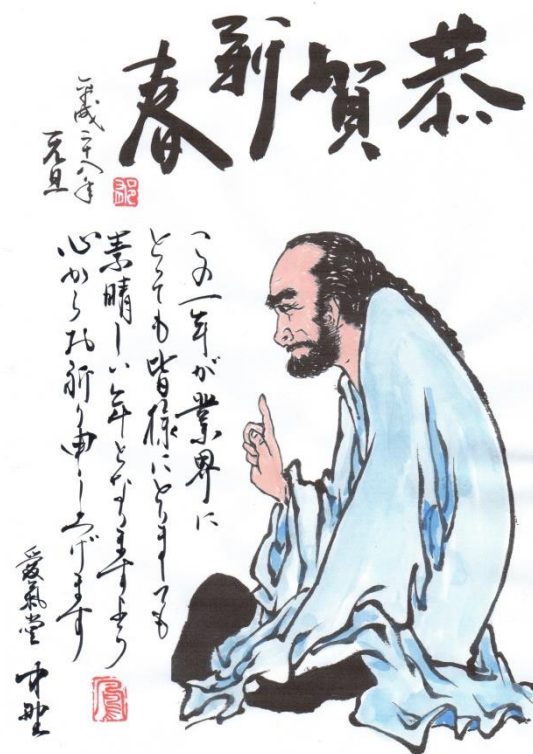 恭賀新春
平成二十八年
元旦
この一年が業界に
とっても皆様にとりましても
素晴しい年となりますよう
心からお祈り申し上げます
愛氣堂 中野